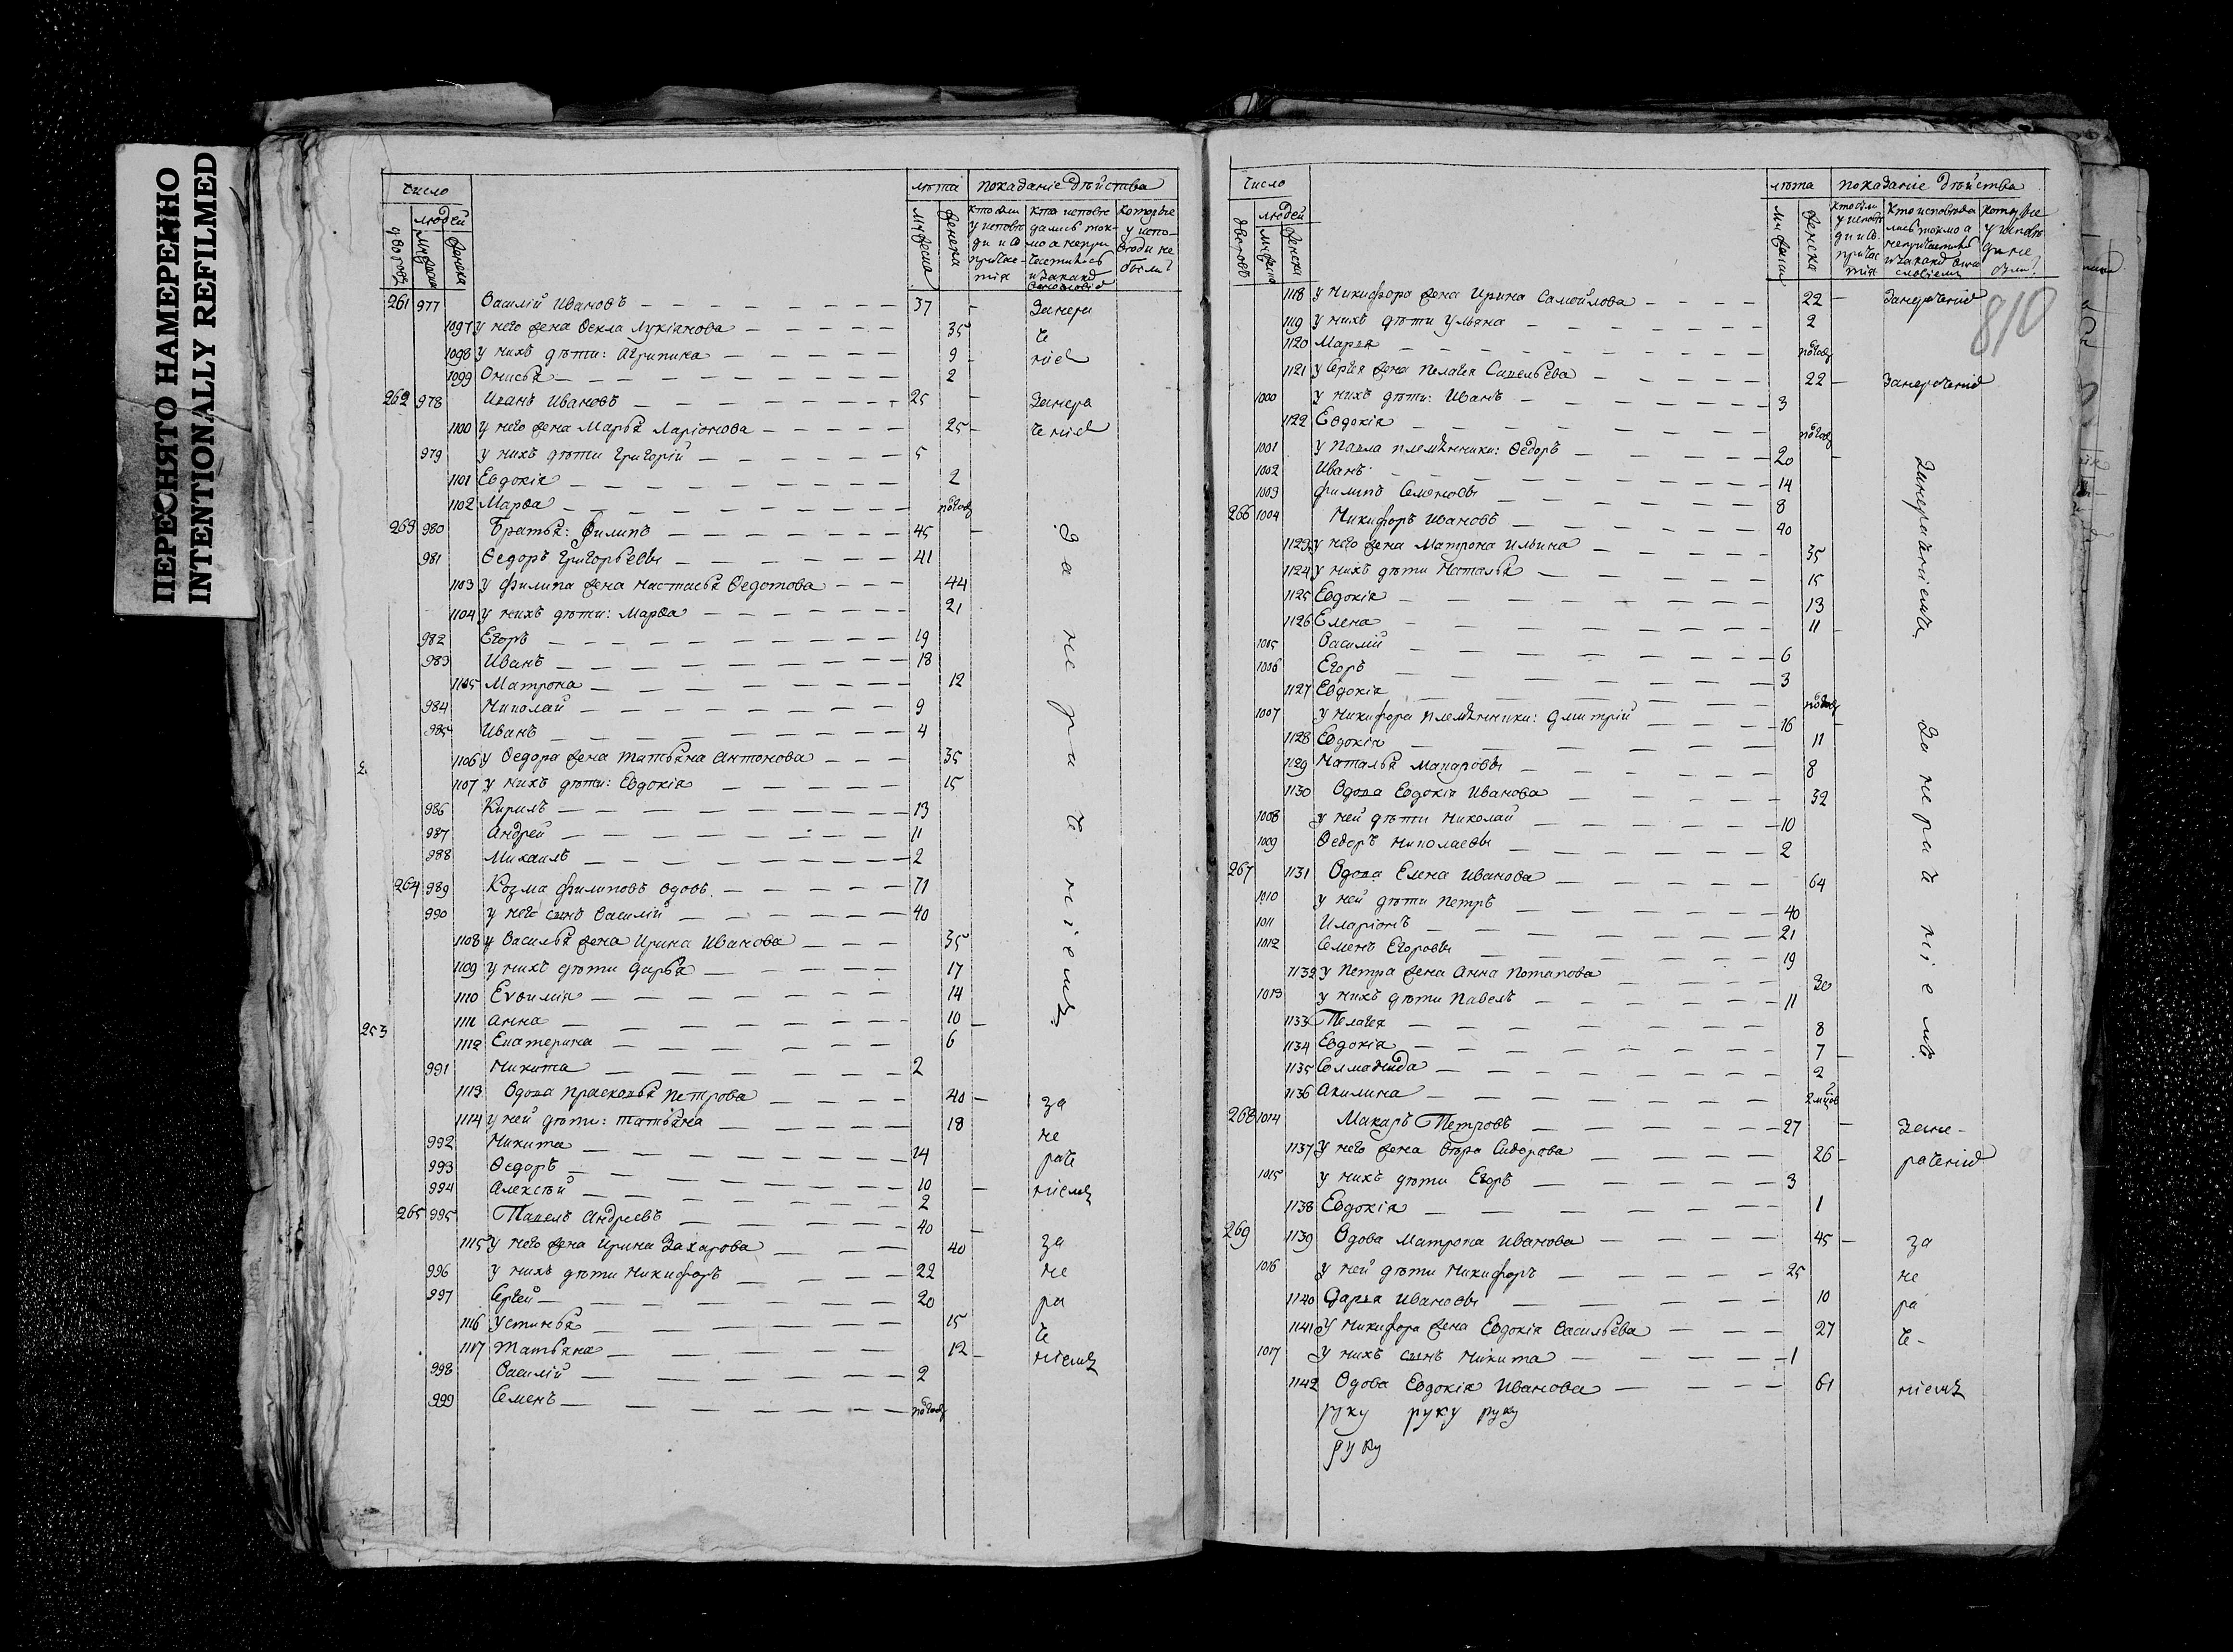 ПЕРЕСНЯТО НАМЕРЕННО
INTENTIONALLY REFILMED
число
лѣта показаніе дѣйства
людей
261 977 Василій Ивановъ 37
1097 у него жена Фекла Лукіанова 35
1098 у нихъ дѣти: Агрипина 9
1099 Онисья 2
262 978 Иванъ Ивановъ 25
1100 у него жена Марья Ларіонова 25
979 у нихъ дѣти Григорій 5
1101 Евдокія 2
1102 Марѳа
263 980 Братья: Филипъ 45
981 Ѳедоръ Григорьевы 41
1103 у Филипа жена Настасья Ѳедотова 44
1104 у нихъ дѣти: Марѳа 21
982 Егоръ 19
983 Иванъ 18
1105 Матрона 12
984 Николай 9
985 Иванъ 4
1106 у Ѳедора жена Татьяна Антонова 35
1107 у нихъ дѣти: Евдокія 15
986 Кирилъ 13
987 Андрей 11
988 Михаилъ 2
264 989 Козма Филиповъ вдовъ 71
990 у него сынъ Василій 40
1108 у Василья жена Ирина Иванова 35
1109 у нихъ дѣти Дарья 17
1110 Евѳимія 14
1111 Анна 10
253
1112 Екатерина 6
991 Никита 2
1113 Вдова Прасковья Петрова 40 за
1114 у ней дѣти: Татьяна 18 не
992 Никита 14 раче
993 Ѳедоръ 10
994 Алексѣй 2 ніемъ
265 995 Павелъ Андреевъ 40
1115 у него жена Ирина Захарова 40 за
996 у нихъ дѣти Никифоръ 22 не
997 Сергей 20 ра
1116 Устинья 15 че
1117 Татьяна 12 ніемъ
998 Василій 2
999 Семенъ
число
лѣта показаніе дѣйства
людей
810
1118 у Никифора жена Ирина Самойлова 22
1119 у нихъ дѣти Ульяна 2
1120 Марья
1121 у Сергѣя жена Пелагея Савельева 22
1000 у нихъ дѣти: Иванъ 3
1122 Евдокія
1001 у Павла племянники: Ѳедоръ 20
1002 Иванъ 14
1003 Филипъ Семеновы 8
266 1004 Никифоръ Ивановъ 40
1123 у него жена Матрона Ильина 35
1124 у нихъ дѣти Наталья 15
1125 Евдокія 13
1126 Елена 11
1005 Василій 6
1006 Егоръ 3
1127 Евдокія
1007 у Никифора племянники: Дмитрій 16
1128 Евдокія 11
1129 Наталья Макаровы 8
1130 Вдова Евдокія Иванова 32
1008 у ней дѣти Николай 10
1009 Ѳедоръ Николаевы 2
267 1131 Вдова Елена Иванова 64
1010 у ней дѣти Петръ 40
1011 Иларіонъ 21
1012 Семенъ Егоровы 19
1132 у Петра жена Анна Потапова 30
1013 у нихъ дѣти Павелъ 11
1133 Пелагея 8
1134 Евдокія 7
1135 2
1136 Акилина
268 1014 Макаръ Петровъ 27
1137 у него жена Ѳѣкла Сидорова 26
1015 у нихъ дѣти Егоръ 3
1138 Евдокія 1
269 1139 Вдова Матрона Иванова 45 за
1016 у ней дѣти Никифоръ 25 не
1140 Дарья Ивановы 10 ра
1141 у Никифора жена Евдокія Васильева 27 че
1017 у нихъ сынъ Никита 1
1142 Вдова Евдокія Иванова 61 ніемъ
руку руку руку
руку